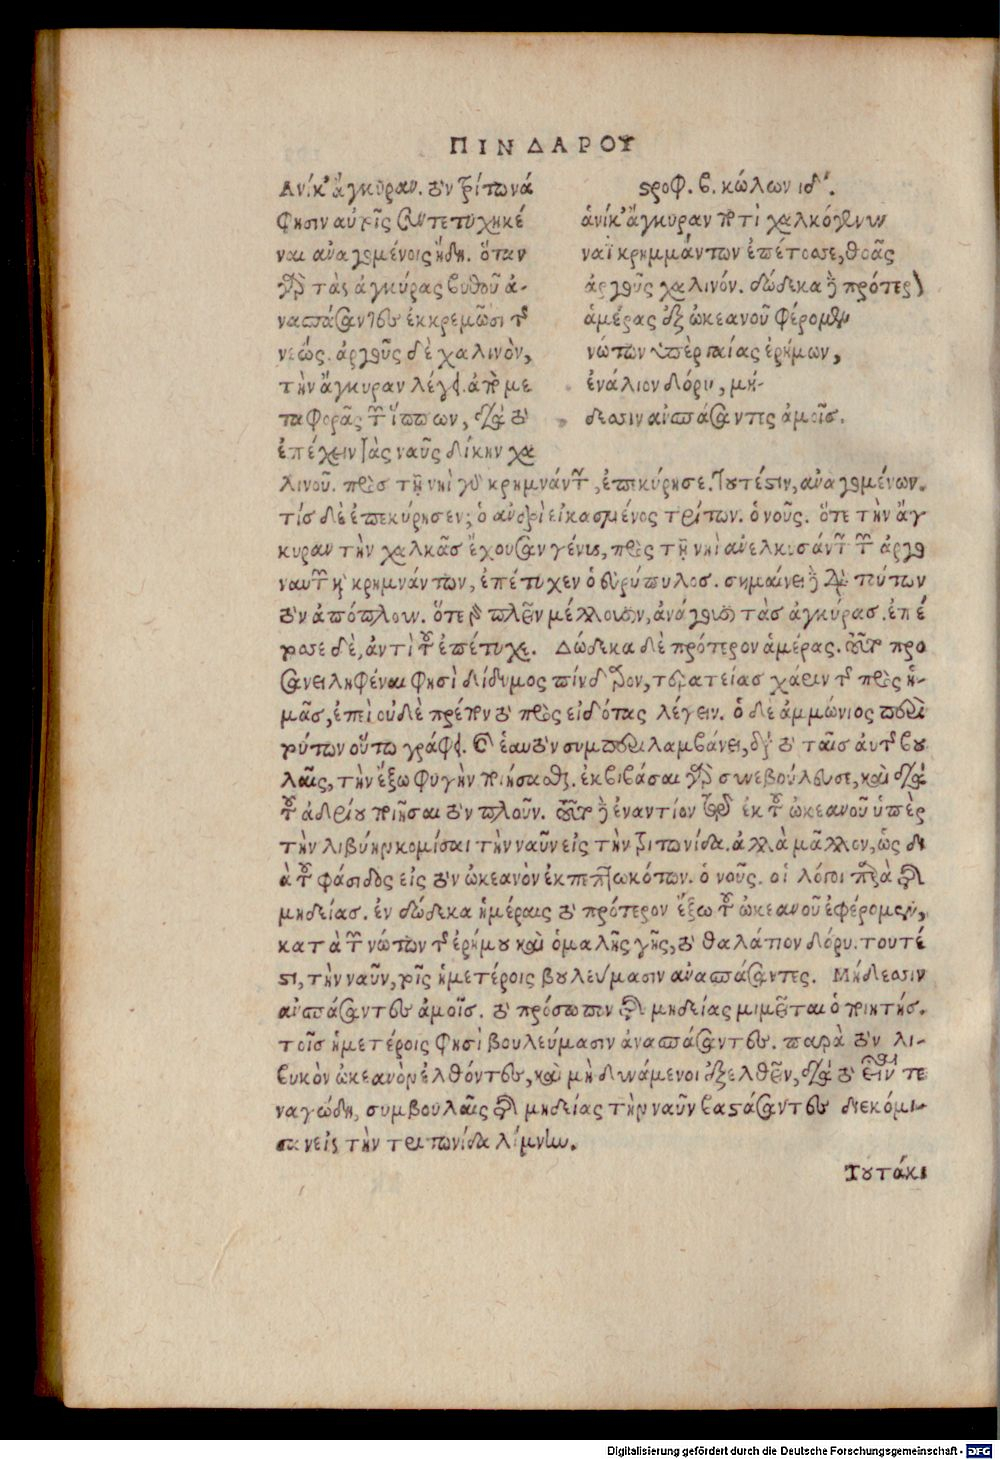 ΠΙΝΔΑΡΟΥ
Ανίκ' ἄγκυραν. τὸν τρίτωνά
φησιν αὐτοῖς ἐντετυχηκέ
ναι ἀναγομένοις ἤδη. ὅταν
γὰρ τὰς ἀγκύρας βυθοῦ ἀ-
νασπάσαντες ἐκκρεμῶσι τῆς
νεώς. ἀργοῦς δὲ χαλινὸν,
τὴν ἄγκυραν λέγει. ἀπὸ με
ταφορᾶς τῶν ἵππων, διὰ τὸ
ἐπέχειν τὰς ναῦς δίκην χα
στροφ. β. κώλων ιδ'.
ἁνίκ' ἄγκυραν ποτὶ χαλκόγενυν
ναῒ κρημνάντων ἐπέτοσσε, θοᾶς
ἀργοῦς χαλινόν. δώδεκα δὲ πρότερον
ἁμέρας ἐξ ὠκεανοῦ φέρομεν
νώτων ὑπὲρ γαίας ἐρήμων,
ἐνάλιον δόρυ, μή-
δεσιν ἀνσπάσαντες ἀμοῖς.
λινοῦ. πρὸς τῇ νηὶ γοῦν κρημνάντων, ἐπεκύρησε. τουτέστιν, ἀναγομένων.
τίς δὲ ἐπεκύρησεν; ὁ ἀνδρὶ εἰκασμένος τρίτων. ὁ νοῦς. ὅτε τὴν ἄγ
κυραν τὴν χαλκᾶς ἔχουσαν γένυς, πρὸς τῇ νηὶ ἀνελκυσάντων τῶν ἀργο
ναυτῶν καὶ κρημνάντων, ἐπέτυχεν ὁ εὐρύπυλος. σημαίνει δὲ διὰ τούτων
τὸν ἀπόπλουν. ὅτε γὰρ πλεῖν μέλλουσιν, ἀνάγουσι τὰς ἀγκύρας. ἐπέ
τοσε δὲ, ἀντὶ τοῦ ἐπέτυχε. Δώδεκα δὲ πρότερον ἁμέρας. τοῦτο προ
σανειληφέναι φησὶ δίδυμος πίνδαρον, τερατείας χάριν τῆς πρὸς ἡ-
μᾶς, ἐπεὶ οὐδὲ πρέπον τὸ πρὸς εἰδότας λέγειν. ὁ δὲ ἀμμώνιος περὶ
τούτων οὕτω γράφει. ἑαυτὸν συμπεριλαμβάνει, διὰ τὸ ταῖς αὐτῆς βου
λαῖς, τὴν ἔξω φυγὴν ποιήσασθαι. ἐκβιβάσαι γὰρ συνεβούλευσε, καὶ διὰ
τοῦ ἀδρίου ποιῆσαι τὸν πλοῦν. τοῦτο δὲ ἐναντίον τῷ ἐκ τοῦ ὠκεανοῦ ὑπὲρ
τὴν λιβύην κομίσαι τὴν ναῦν εἰς τὴν τριτωνίδα. ἀλλὰ μᾶλλον, ὡς δι
ὰ τοῦ φάσιδος εἰς τὸν ὠκεανὸν ἐκπεπτωκότων. ὁ νοῦς. οἱ λόγοι παρὰ τῆς
μηδείας. ἐν δώδεκα ἡμέραις τὸ πρότερον ἔξω τοῦ ὠκεανοῦ ἐφέρομεν,
κατὰ τῶν νώτων τῆς ἐρήμου καὶ ὁμαλῆς γῆς, τὸ θαλάττιον δόρυ. τουτέ
στι, τὴν ναῦν, τοῖς ἡμετέροις βουλεύμασιν ἀνασπάσαντες. Μήδεσιν
ἀνσπάσαντες ἀμοῖς. τὸ πρόσωπον τῆς μηδείας μιμεῖται ὁ ποιητής.
τοῖς ἡμετέροις φησὶ βουλεύμασιν ἀνασπάσαντες. παρὰ τὸν λι-
βυκὸν ὠκεανὸν ἐλθόντες, καὶ μὴ δυνάμενοι ἐξελθεῖν, διὰ τὸ εἶναι τε
ναγώδη, συμβουλαῖς τῆς μηδείας τὴν ναῦν βαστάσαντες διεκόμι-
σαν εἰς τὴν τριτωνίδα λίμνην.
Τουτάκι
Digitalisierung gefördert durch die Deutsche Forschungsgemeinschaft - DFG